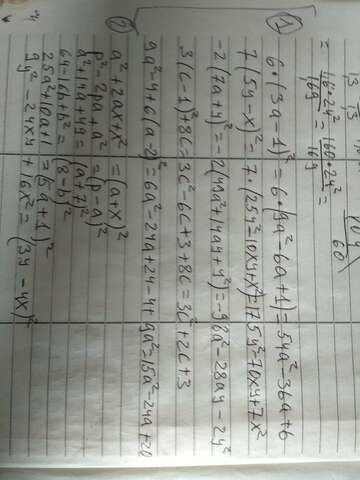 1
6·(3a-1)²=6·(9a²-6a+1)=54a²-36a+6
7(5y-x)²=7·(25y²-10xy+x²)=175y²-70xy+7x²
-2(7a+y)²=-2(49a²+14ay+y²)=-98a²-28ay-2y²
3(c-1)²+8c=3c²-6c+3+8c=3c²+2c+3
9a²-4+6(a-2)²=6a²-24a+24-4+9a²=15a²-24a+20
2
a²+2ax+x²=(a+x)²
p²-2pa+a²=(p-a)²
a²+14a+49=(a+7)²
64-16b+b²=(8-b)²
25a²+10a+1=(5a+1)²
9y²-24xy+16x²=(3y-4x)²